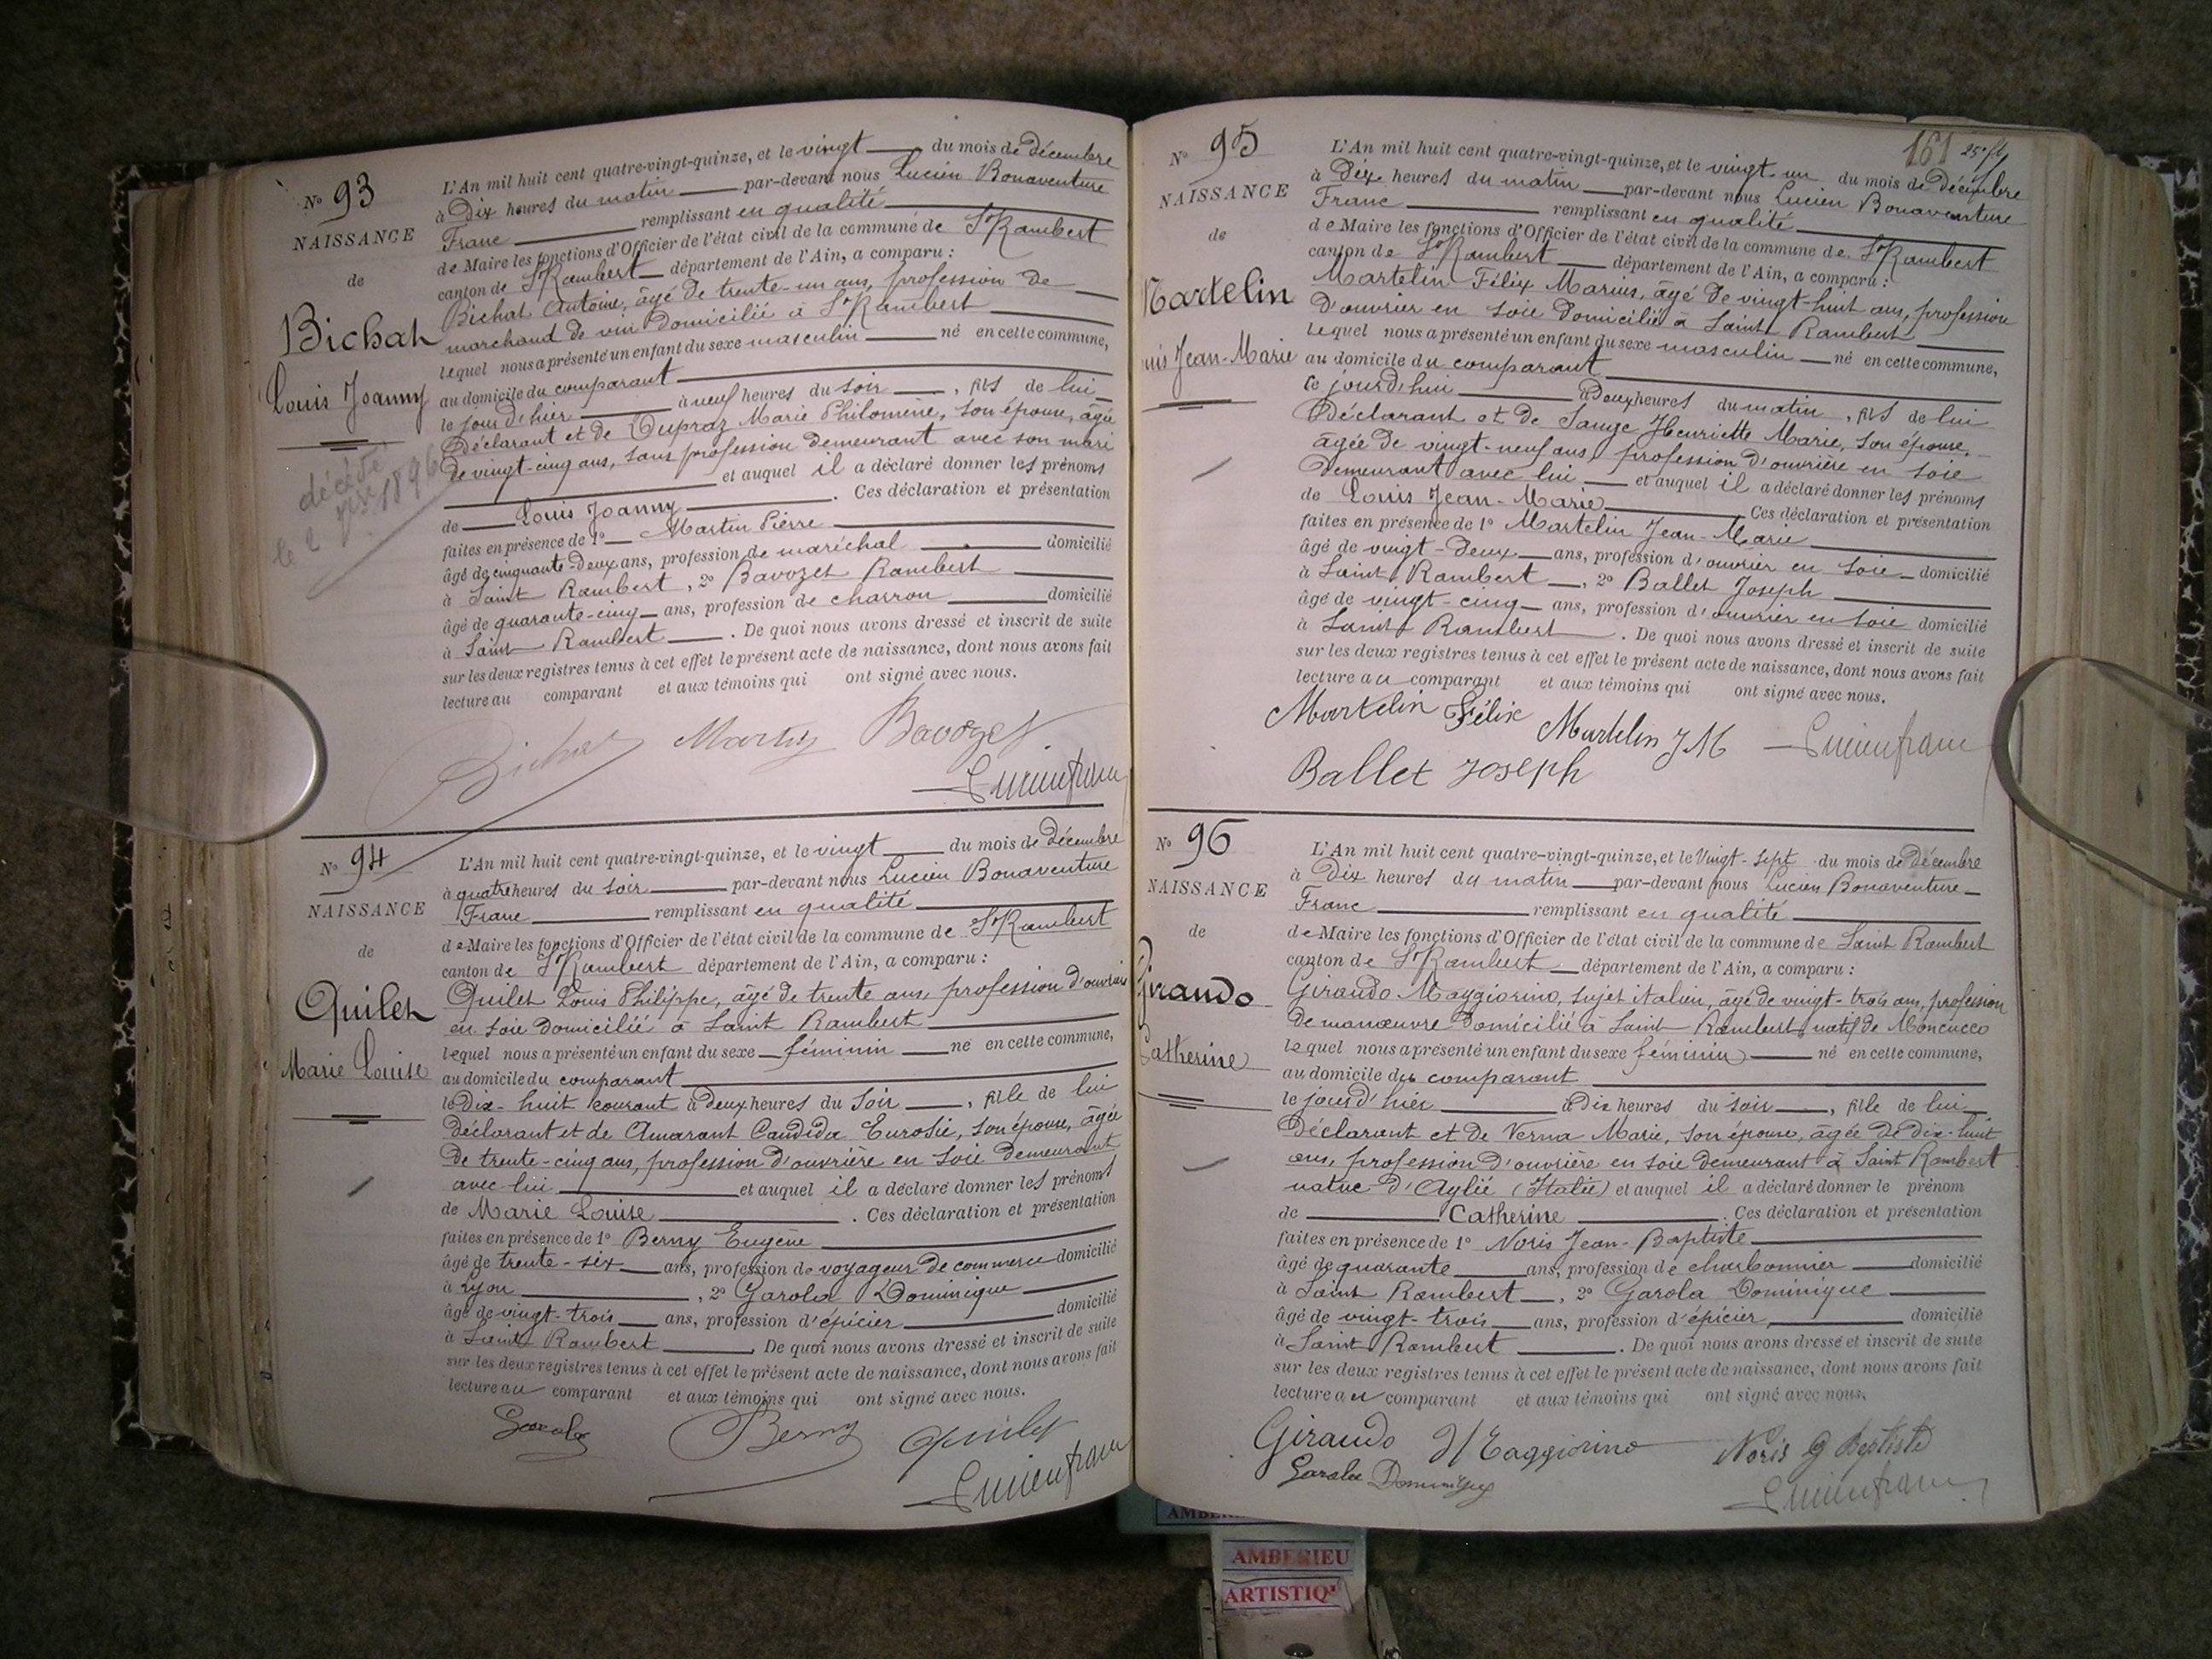 No 93
NAISSANCE
de
Bichat
Louis Joanny
décédé
le 2 7bre 1896
L'An mil huit cent quatre-vingt-quinze, et le vingt du mois de décembre
à Dix heures du matin par-devant nous Lucien Bonaventure
Franc remplissant en qualité
de Maire les fonctions d'Officier de l'état civil de la commune de St Rambert
canton de St Rambert département de l'Ain, a comparu :
Bichat Antoine, âgé de trente-un ans, profession de
marchand de vin domicilié à St Rambert
lequel nous a présenté un enfant du sexe masculin né en cette commune,
au domicile du comparant
le jour d'hier à neuf heures du soir, fils de lui
Déclarant et de Dupraz Marie Philomène, son épouse, âgée
de vingt-cinq ans, sans profession demeurant avec son mari
et auquel il a déclaré donner les prénoms
de Louis Joanny. Ces déclaration et présentation
faites en présence de 1º Martin Pierre
âgé de cinquante-deux ans, profession de maréchal domicilié
à Saint Rambert, 2º Bavozet Rambert
âgé de quarante-cinq ans, profession de charron domicilié
à Saint Rambert. De quoi nous avons dressé et inscrit de suite
sur les deux registres tenus à cet effet le présent acte de naissance, dont nous avons fait
lecture au comparant et aux témoins qui ont signé avec nous.
Bichat Martin Bavozet
Lucien franc
No 94
NAISSANCE
de
Quilet
Marie Louise
L'An mil huit cent quatre-vingt-quinze, et le vingt du mois de décembre
à quatre heures du soir par-devant nous Lucien Bonaventure
Franc remplissant en qualité
de Maire les fonctions d'Officier de l'état civil de la commune de St Rambert
canton de St Rambert département de l'Ain, a comparu :
Quilet Louis Philippe, âgé de trente ans, profession d'ouvrier
en soie domicilié à Saint Rambert
lequel nous a présenté un enfant du sexe féminin né en cette commune,
au domicile du comparant
le dix-huit courant à deux heures du soir, fille de lui
déclarant et de Amarant Candida Eurosie, son épouse, âgée
de trente-cinq ans, profession d'ouvrière en soie demeurant
avec lui et auquel il a déclaré donner les prénoms
de Marie Louise. Ces déclaration et présentation
faites en présence de 1º Berny Eugène
âgé de trente-six ans, profession de voyageur de commerce domicilié
à Lyon, 2º Garola Dominique
âgé de vingt-trois ans, profession d'épicier domicilié
à Saint Rambert. De quoi nous avons dressé et inscrit de suite
sur les deux registres tenus à cet effet le présent acte de naissance, dont nous avons fait
lecture au comparant et aux témoins qui ont signé avec nous.
Garola Berny Quilet
Lucien franc
161
No 95
NAISSANCE
de
Martelin
uis Jean-Marie
L'An mil huit cent quatre-vingt-quinze, et le vingt-un du mois de décembre
à Dix heures du matin par-devant nous Lucien Bonaventure
Franc remplissant en qualité
de Maire les fonctions d'Officier de l'état civil de la commune de St Rambert
canton de St Rambert département de l'Ain, a comparu :
Martelin Félix Marius, âgé de vingt-huit ans, profession
d'ouvrier en soie domicilié à Saint Rambert
lequel nous a présenté un enfant du sexe masculin né en cette commune,
au domicile du comparant
ce jourd'hui à deux heures du matin, fils de lui
Déclarant et de Sange Henriette Marie, son épouse,
âgée de vingt-neuf ans, profession d'ouvrière en soie
demeurant avec lui et auquel il a déclaré donner les prénoms
de Louis Jean-Marie Ces déclaration et présentation
faites en présence de 1º Martelin Jean-Marie
âgé de vingt-deux ans, profession d'ouvrier en soie domicilié
à Saint Rambert, 2º Ballet Joseph
âgé de vingt-cinq ans, profession d'ouvrier en soie domicilié
à Saint Rambert. De quoi nous avons dressé et inscrit de suite
sur les deux registres tenus à cet effet le présent acte de naissance, dont nous avons fait
lecture au comparant et aux témoins qui ont signé avec nous.
Martelin Félix Martelin J M Lucien franc
Ballet Joseph
No 96
NAISSANCE
de
Giraudo
Catherine
L'An mil huit cent quatre-vingt-quinze, et le Vingt-sept du mois de décembre
à Dix heures du matin par-devant nous Lucien Bonaventure
Franc remplissant en qualité
de Maire les fonctions d'Officier de l'état civil de la commune de Saint Rambert
canton de St Rambert département de l'Ain, a comparu :
Giraudo Maggiorino, sujet italien, âgé de vingt-trois ans, profession
de manœuvre domicilié à Saint Rambert natif de Moncucco
lequel nous a présenté un enfant du sexe féminin né en cette commune,
au domicile du comparant
le jour d'hier à dix heures du soir, fille de lui
Déclarant et de Verna Marie, son épouse, âgée de dix-huit
ans, profession d'ouvrière en soie demeurant à Saint Rambert
native d'Aglié (Italie) et auquel il a déclaré donner le prénom
de Catherine. Ces déclaration et présentation
faites en présence de 1º Noris Jean-Baptiste
âgé de quarante ans, profession de charbonnier domicilié
à Saint Rambert, 2º Garola Dominique
âgé de vingt-trois ans, profession d'épicier, domicilié
à Saint Rambert. De quoi nous avons dressé et inscrit de suite
sur les deux registres tenus à cet effet le présent acte de naissance, dont nous avons fait
lecture au comparant et aux témoins qui ont signé avec nous.
Giraudo Maggiorino Noris G Baptiste
Garola Dominique Lucien franc
AMBERIEU
ARTISTIQ